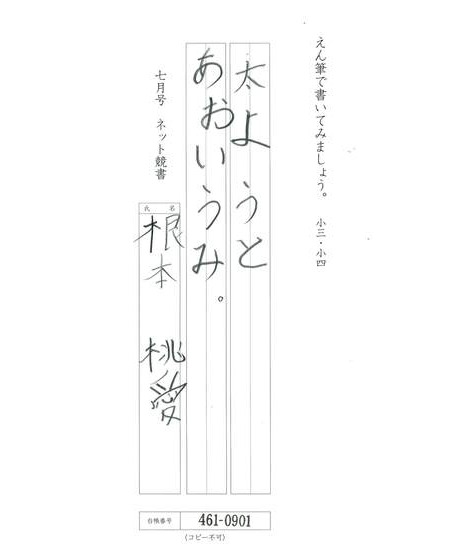 えん筆で書いてみましょう。 小三・小四
太ようと
あおいうみ。
七月号 ネット競書
氏名
根本 桃愛
台帳番号 461-0901
(コピー不可)